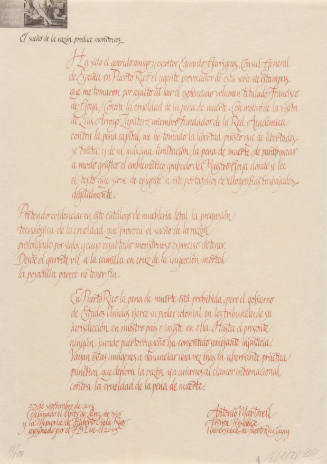 El sueño de la razón produce monstruos
Ha sido el querido amigo y escritor Eduardo Garrigues, Cónsul General
de España en Puerto Rico el agente provocador de esta serie de estampas
que me tomaron por asalto al ver el espléndido volumen titulado Francisco
de Goya, Contra la crueldad de la pena de muerte. Con motivo de la visita
de Luis Arroyo Zapatero, miembro fundador de la Red Académica
contra la pena capital, me he tomado la libertad, puesto que de libertades
se trata y de su máxima limitación, la pena de muerte, de parafrasear
a modo grafiter el emblemático grabado del Maestro Goya donde se lee
el texto que sirve de epígrafe a este portafolios de xilografías trabajadas
digitalmente.
Pretendo evidenciar en este catálogo de mueblería letal, la progresión
tecnológica de la crueldad que provoca el sueño de la razón
prolongado por siglos y cuyo rastro de monstruos es preciso detener.
Desde el garrote vil a la camilla en cruz de la inyección mortal
la pesadilla parece no tener fin.
En Puerto Rico la pena de muerte está prohibida, pero el gobierno
de Estados Unidos ejerce su poder colonial en los tribunales de su
jurisdicción en nuestro país e insiste en ella. Hasta el presente
ningún jurado puertorriqueño ha consentido semejante injusticia.
Vayan estas imágenes a denunciar una vez más la aberrante práctica
punitiva que deplora la razón y a unirnos al clamor internacional
contra la crueldad de la pena de muerte.
Antonio Martorell
Artista Residente
Universidad de Puerto Rico, Cayey